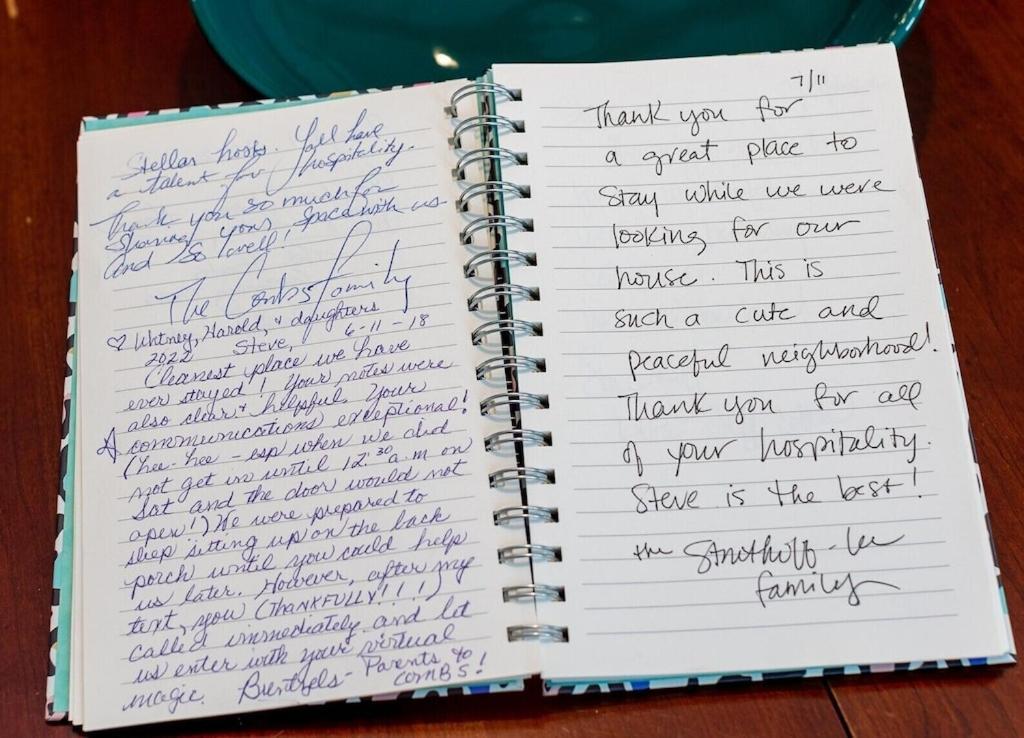 Stellar hosts. Y'all have
a talent for hospitality.
Thank you so much for
sharing your space with us
and so lovely!
The Combs Family
♡ Whitney, Harold, + daughters
2022 Steve, 6-11-18
Cleanest place we have
ever stayed! Your notes were
also clear + helpful. Your
communications exceptional!
(hee-hee - esp when we did
not get in until 12:30 a.m on
Sat and the door would not
open!) We were prepared to
sleep sitting up on the back
porch until you could help
us later. However, after my
text, you (THANKFULLY!!!!)
called immediately and let
us enter with your virtual
magic. Parents to
COMBS!
7/11
Thank you for
a great place to
stay while we were
looking for our
house. This is
such a cute and
peaceful neighborhood!
Thank you for all
of your hospitality.
Steve is the best!
the
family